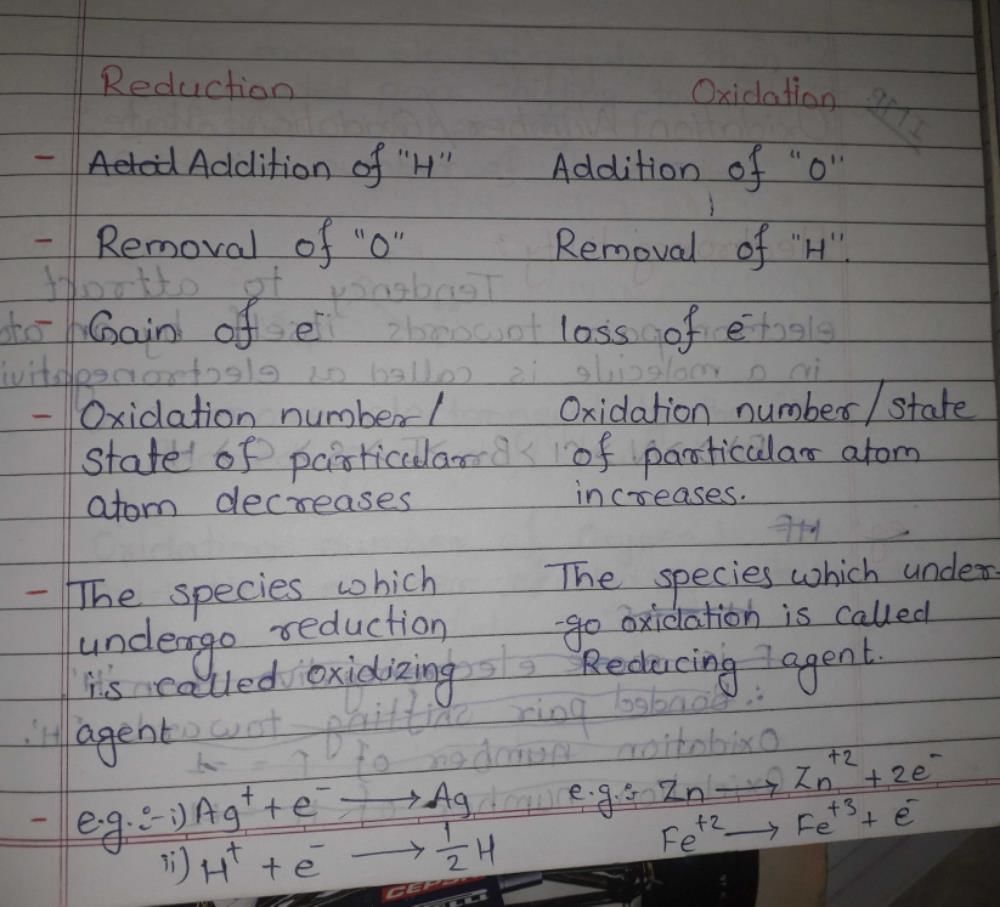 Reduction Oxidation
- Addition of "H" Addition of "O"
- Removal of "O" Removal of "H".
- Gain of e⁻ loss of e⁻
- Oxidation number/ Oxidation number/state
state of particular of particular atom
atom decreases increases.
- The species which The species which under-
undergo reduction -go oxidation is called
is called oxidizing Reducing agent.
agent
- e.g.:- i) Ag⁺ + e⁻ → Ag e.g.:- Zn → Zn⁺² + 2e⁻
ii) H⁺ + e⁻ → 1/2 H Fe⁺² → Fe⁺³ + e⁻